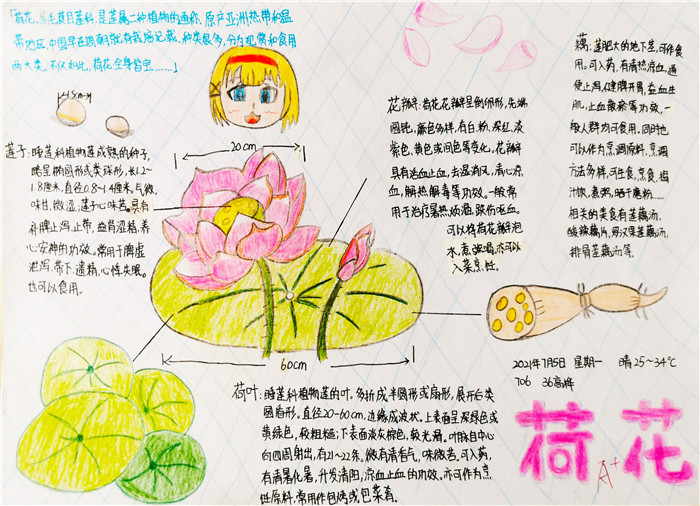 「荷花,属毛茛目莲科,是莲属二种植物的通称,原产亚洲热带和温
带地区,中国早在周朝就有栽培记载,种类很多,分为观赏和食用
两大类,不仅如此,荷花全身皆宝……」
莲子:睡莲科植物莲成熟的种子,
略呈椭圆形或类球形,长1.2~
1.8厘米,直径0.8~1.4厘米,气微,
味甘,微涩,莲子心味苦。具有
补脾止泻,止带,益肾涩精,养
心安神的功效。常用于脾虚
泄泻,带下,遗精,心悸失眠。
也可以食用。
20cm
花瓣:荷花花瓣呈倒卵形,先端
圆钝,颜色多样,有白,粉,深红,淡
紫色,黄色或间色等变化。花瓣
具有活血止血,去湿消风,清心凉
血,解热解毒等功效。一般常
用于治疗暑热烦渴,跌伤呕血。
可以将荷花花瓣泡
水,煮粥喝,亦可以
入菜烹饪。
藕:莲肥大的地下茎,可作食
用。可入药,有清热凉血,通
便止泻,健脾开胃,益血生
肌,止血散瘀等功效,一
般人群均可食用。同时也
可以作为烹调原料,烹调
方法多样,可生食,烹食,捣
汁饮,煮粥,晒干磨粉……
相关的美食有莲藕汤,
酸辣藕片,
排骨莲藕汤等。
60cm
荷叶:睡莲科植物莲的叶。多折成半圆形或扇形,展开后类
圆盾形。直径20~60cm,边缘成波状。上表面呈深绿色或
黄绿色,较粗糙;下表面淡灰棕色,较光滑。叶脉自中心
向四周射出,有21~22条。微有清香气,味微苦。可入药,
有清暑化暑,升发清阳,凉血止血的功效。亦可作为烹
饪原料,常用作包烤或包菜肴。
2021年7月5日 星期一 晴25~34℃
706 36
荷花
A+